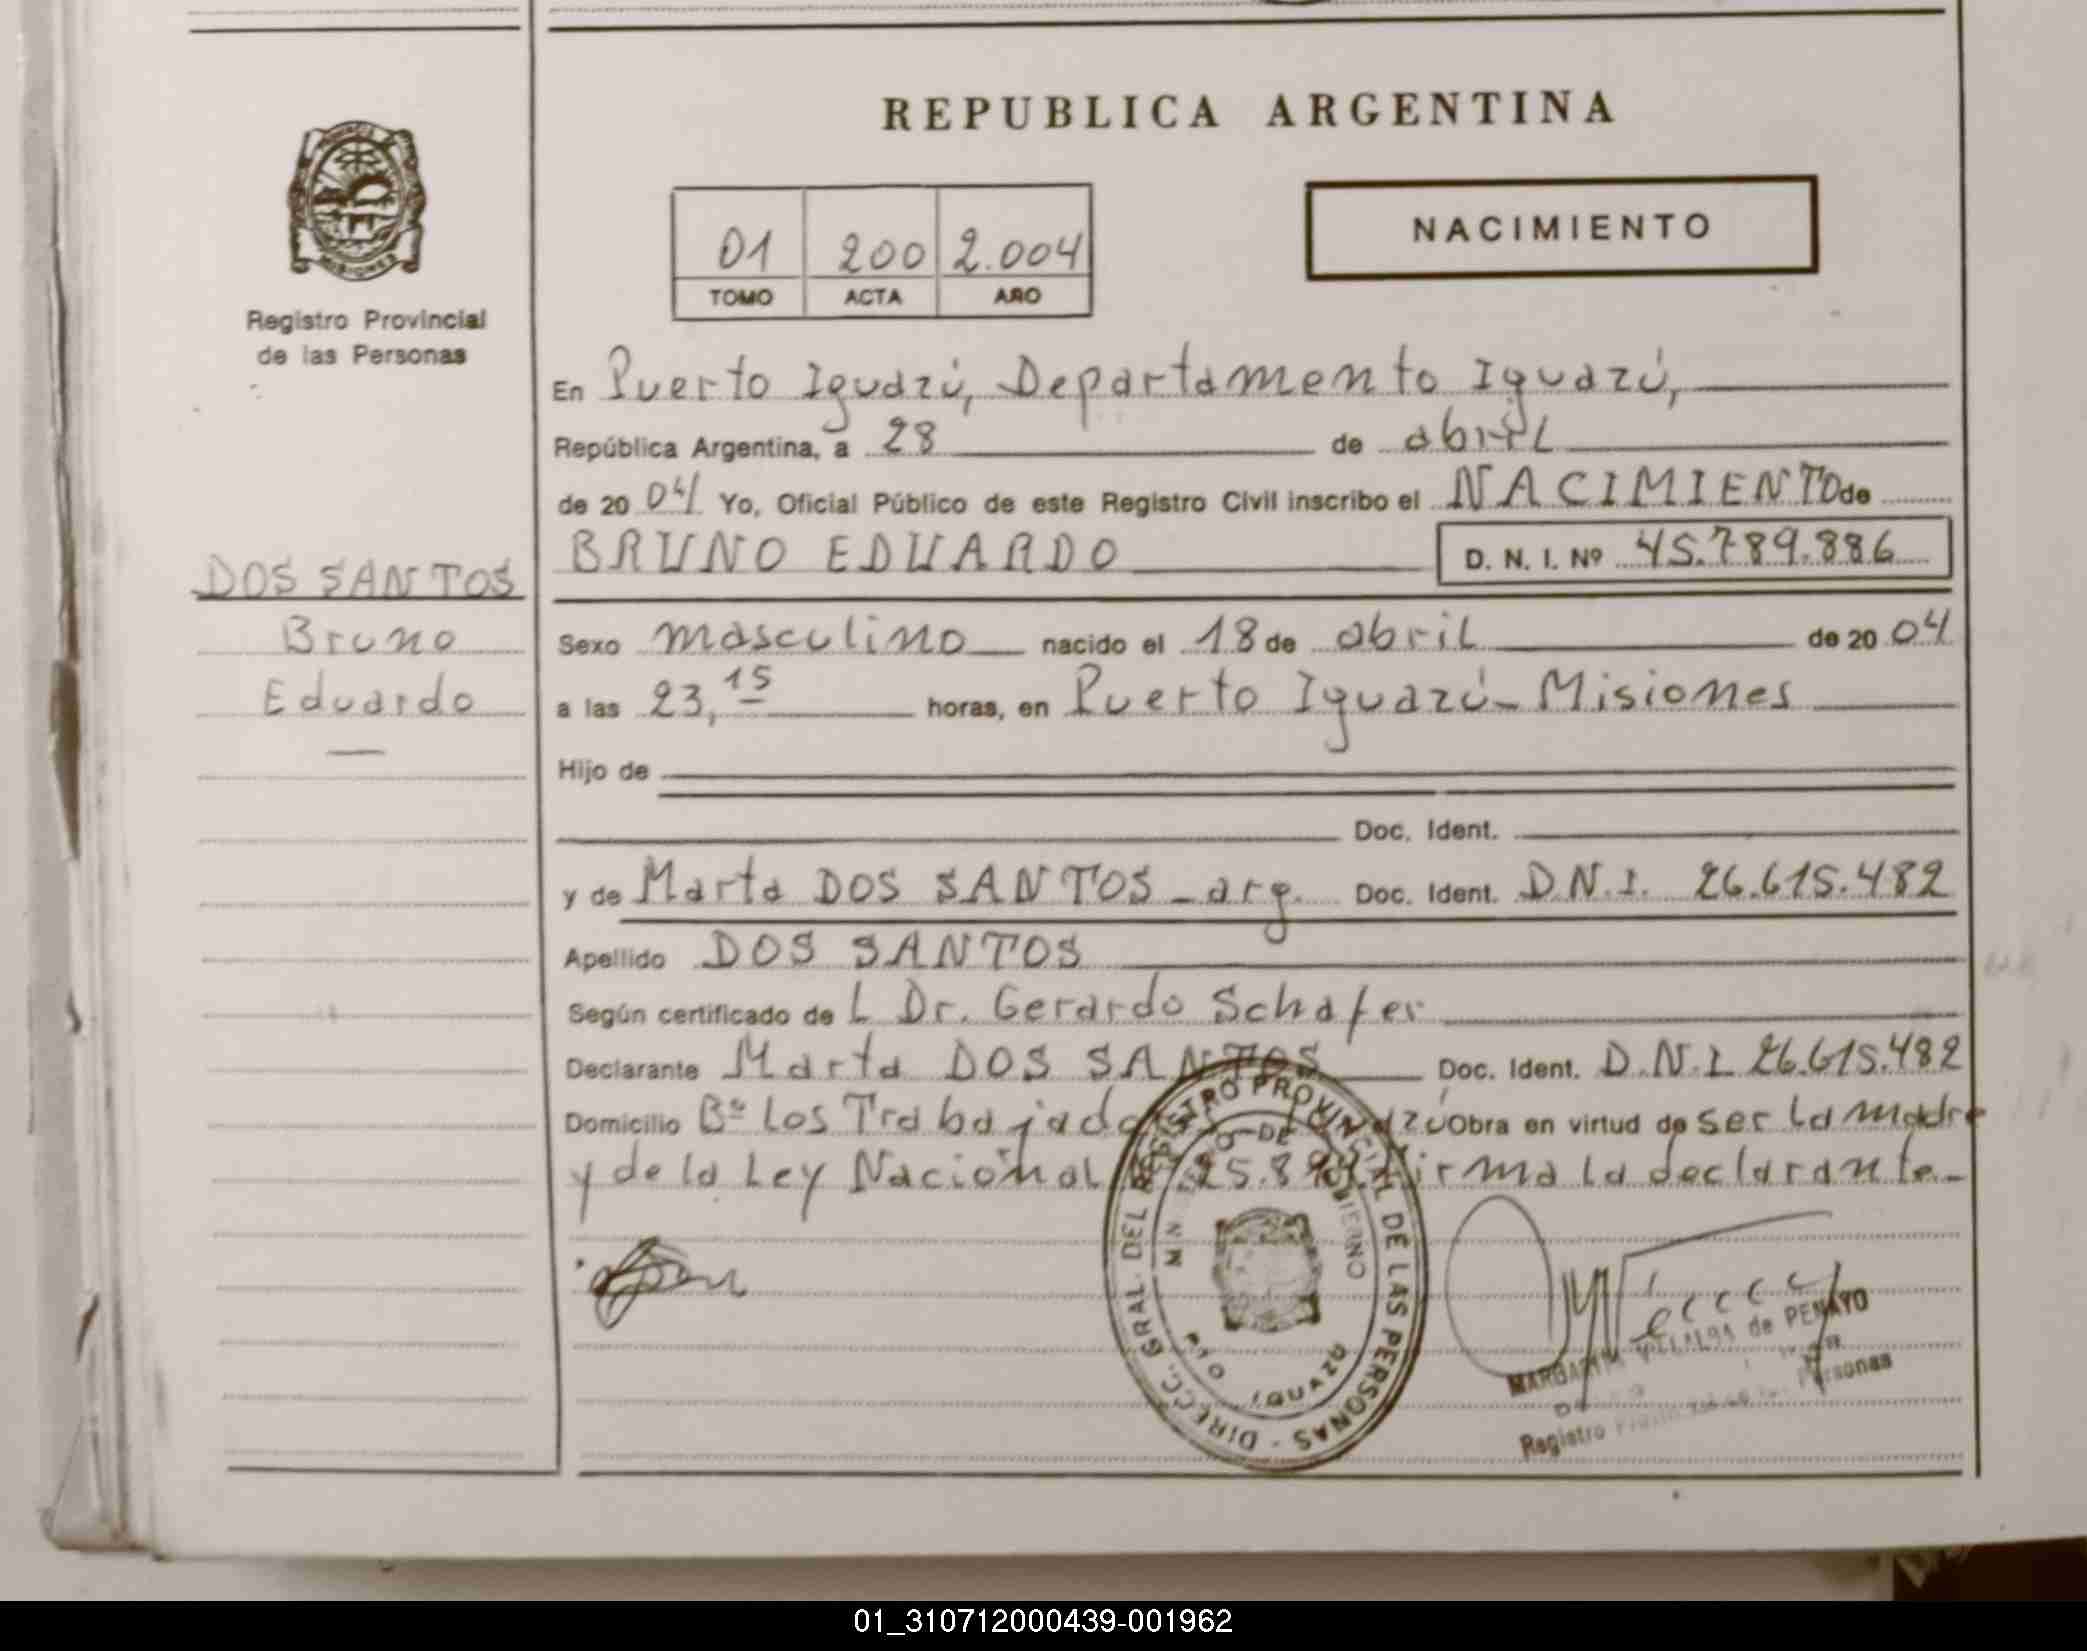 REPUBLICA ARGENTINA
MISIONES
Registro Provincial
de las Personas
01 200 2.004
TOMO ACTA AÑO
NACIMIENTO
En Puerto Iguazú, Departamento Iguazú,
República Argentina, a 28 de abril
de 20 04 Yo, Oficial Público de este Registro Civil inscribo el NACIMIENTO de
BRUNO EDUARDO D. N. I. Nº 45.789.886
DOS SANTOS
Bruno
Eduardo
Sexo masculino nacido el 18 de abril de 20 04
a las 23,15 horas, en Puerto Iguazú - Misiones
Hijo de
Doc. Ident.
y de Marta DOS SANTOS - arg. Doc. Ident. D.N.I. 26.615.482
Apellido DOS SANTOS
Según certificado de L Dr. Gerardo Schafer
Declarante Marta DOS SANTOS Doc. Ident. D.N.I. 26.615.482
Domicilio Bº Los Obra en virtud de ser la madre
y de la Ley Nacional firma la declarante-
DIRECC. GRAL. DEL REGISTRO PROVINCIAL DE LAS PERSONAS
MINISTERIO DE GOBIERNO
PTO IGUAZU
MARGARITA de PENAYO
Registro Personas
01_310712000439-001962